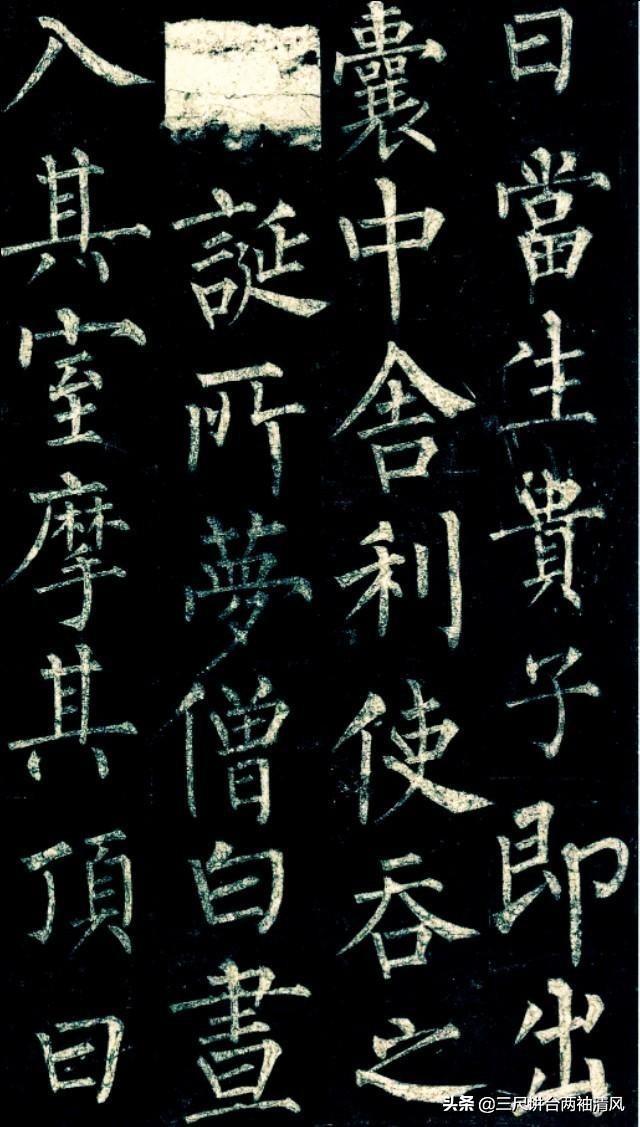 曰當生貴子即出
囊中舍利使吞之
誕所夢僧白晝
入其室摩其頂曰
头条 @三尺讲台两袖清风